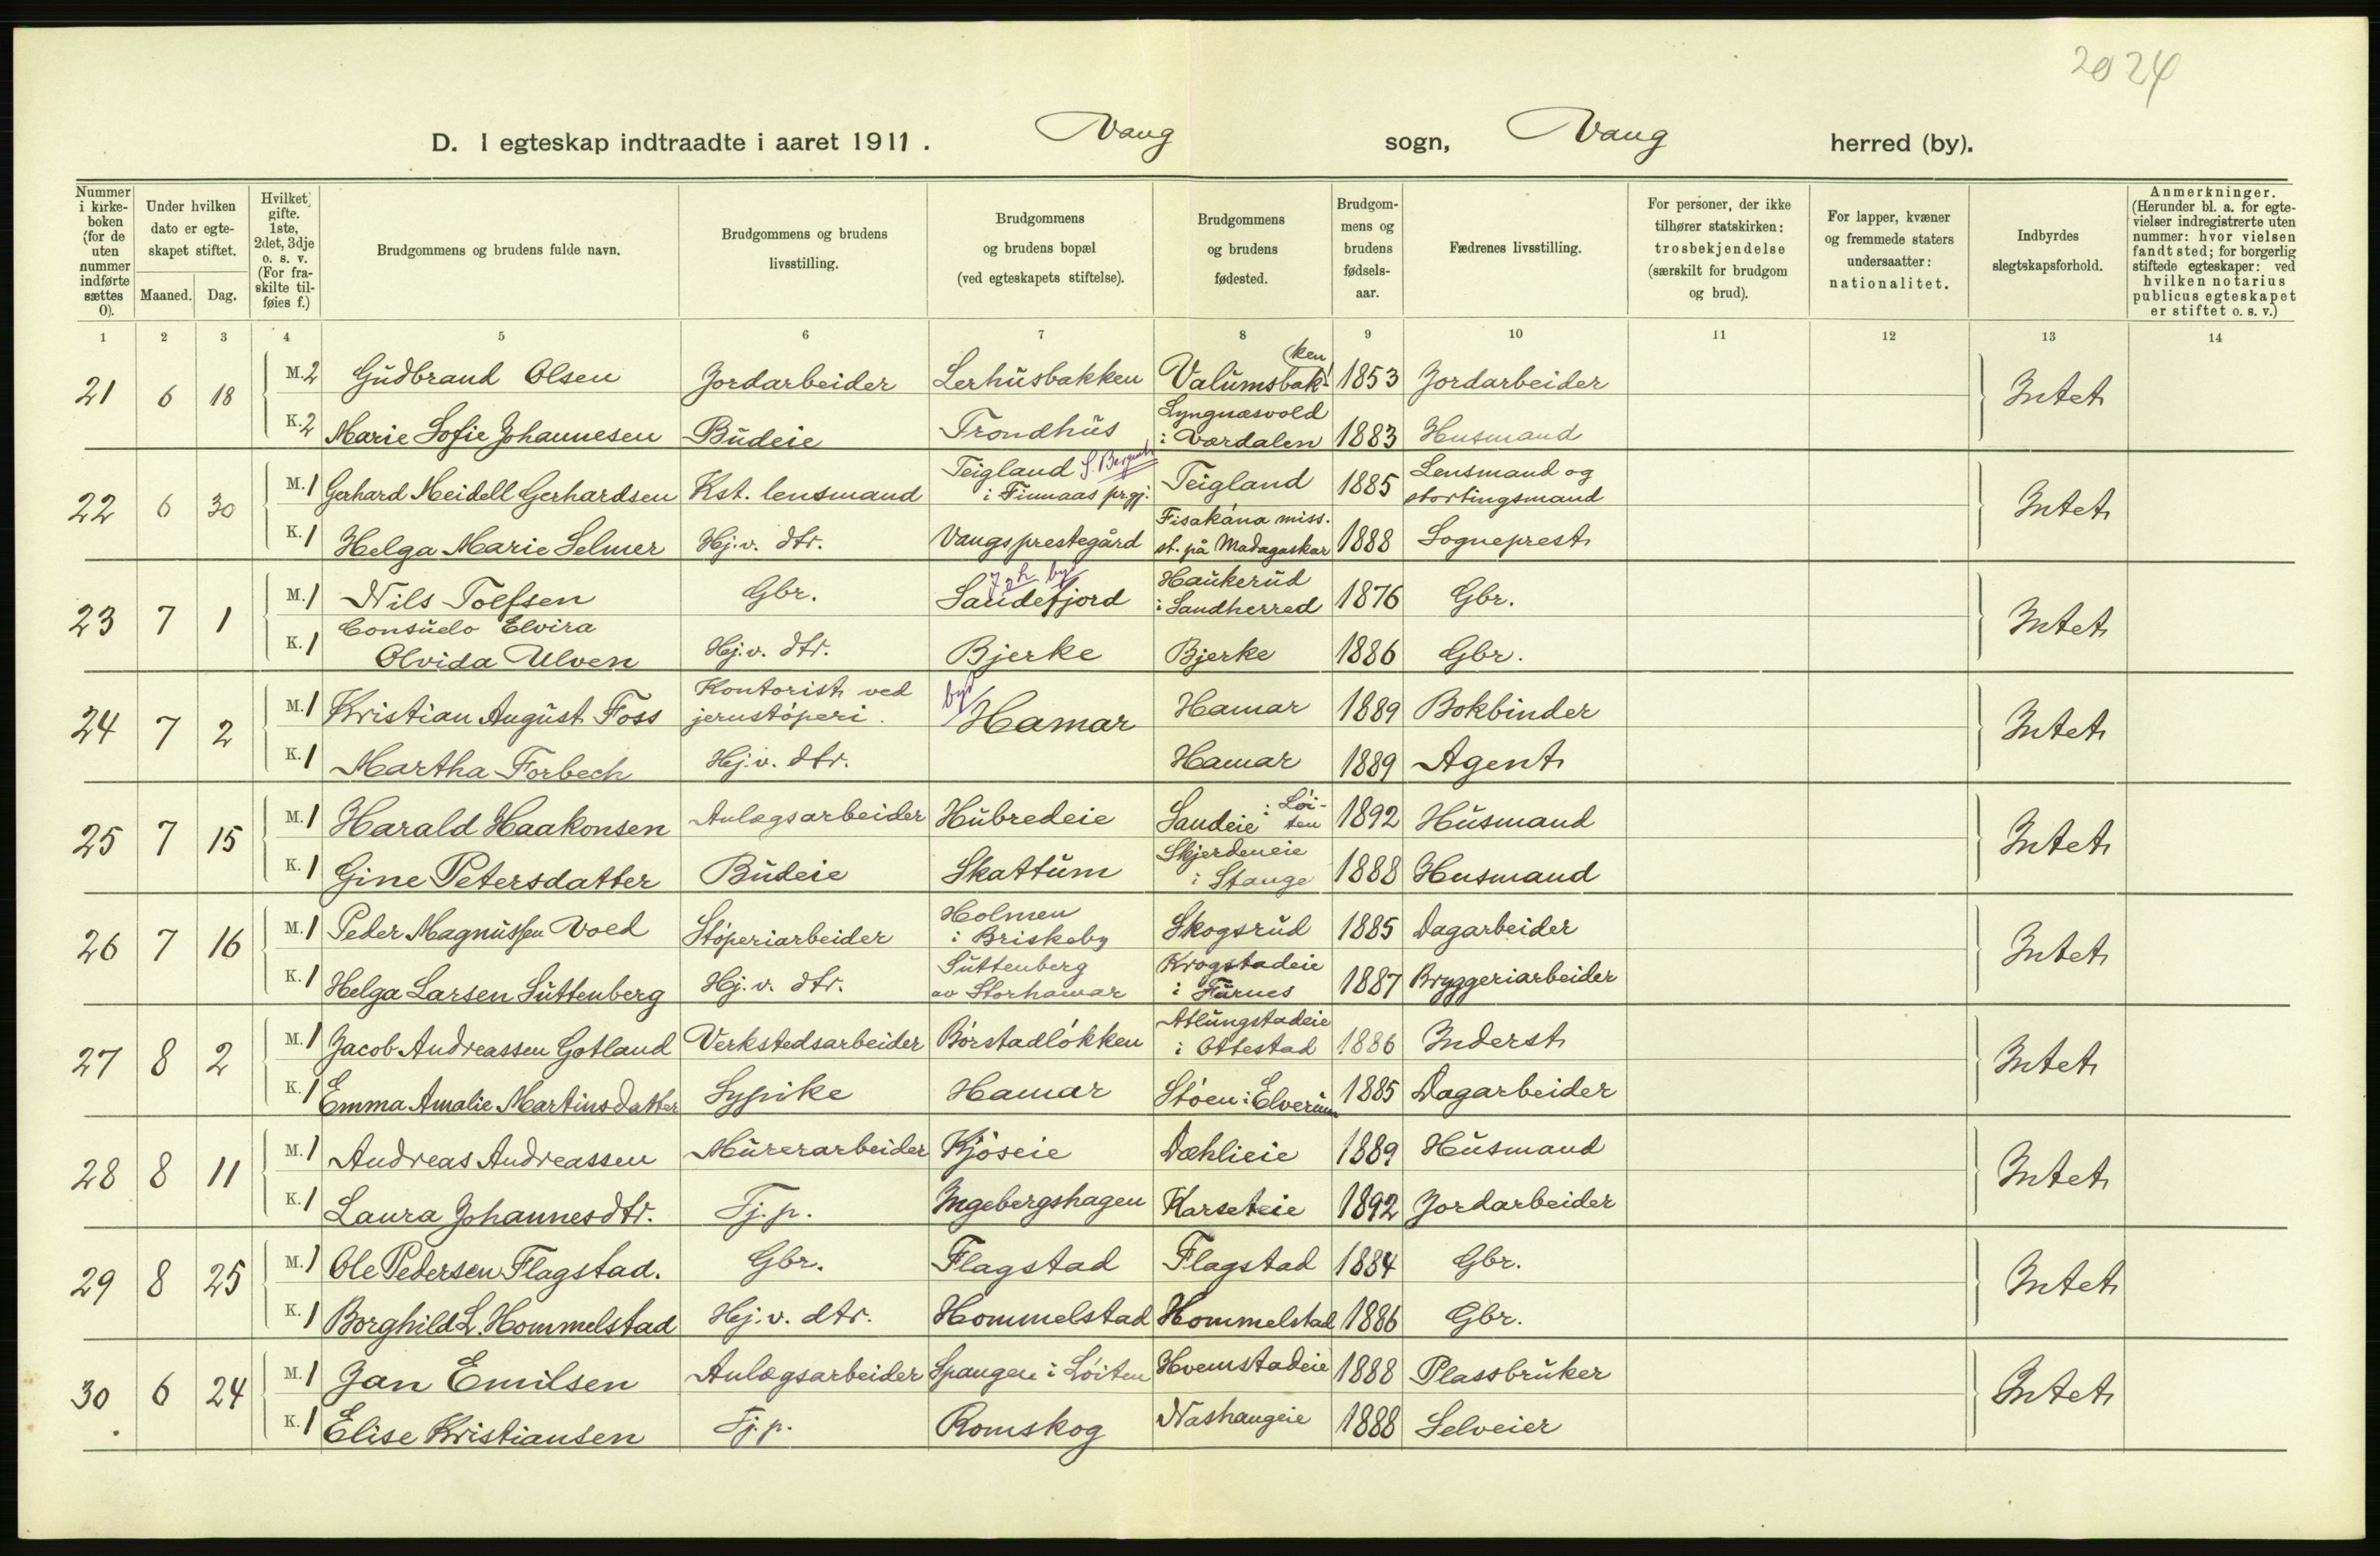 2024
D. I egteskap indtraadte i aaret 1911. Vang sogn, Vang herred (by).
Nummer i kirkeboken (for de uten nummer indførte sættes 0).
Under hvilken dato er egteskapet stiftet.
Maaned. Dag.
Hvilket gifte. 1ste, 2det, 3dje o. s. v. (For fraskilte tilføies f.)
Brudgommens og brudens fulde navn.
Brudgommens og brudens livsstilling.
Brudgommens og brudens bopæl (ved egteskapets stiftelse).
Brudgommens og brudens fødested.
Brudgommens og brudens fødselsaar.
Fædrenes livsstilling.
For personer, der ikke tilhører statskirken: trosbekjendelse (særskilt for brudgom og brud).
For lapper, kvæner og fremmede staters undersaatter: nationalitet.
Indbyrdes slegtskapsforhold.
Anmerkninger. (Herunder bl. a. for egtevielser indregistrerte uten nummer: hvor vielsen fandt sted; for borgerlig stiftede egteskaper: ved hvilken notarius publicus egteskapet er stiftet o. s. v.)
1 2 3 4 5 6 7 8 9 10 11 12 13 14
21 6 18 M. 2 Gudbrand Olsen Jordarbeider Lerhusbakken Valumsbakken 1853 Jordarbeider Intet
K. 2 Marie Sofie Johannesen Budeie Trondhus Lyngnæsvold i Værdalen 1883 Husmand
22 6 30 M. 1 Gerhard Meidell Gerhardsen Kst. lensmand Teigland i Finnaas prgj. Teigland 1885 Lensmand og stortingsmand Intet
K. 1 Helga Marie Selmer Hj.v. dtr. Vangsprestegård Fisakána miss. st. på Madagaskar 1888 Sogneprest
23 7 1 M. 1 Nils Tolfsen Gbr. Sandefjord by Haukerud i Sandherred 1876 Gbr. Intet
K. 1 Consuelo Elvira Olvida Ulven Hj.v. dtr. Bjerke Bjerke 1886 Gbr.
24 7 2 M. 1 Kristian August Foss Kontorist ved jernstöperi. by Hamar Hamar 1889 Bokbinder Intet
K. 1 Martha Forbech Hj.v. dtr. Hamar 1889 Agent
25 7 15 M. 1 Harald Haakonsen Anlægsarbeider Hubredeie Sandeie i Löiten 1892 Husmand Intet
K. 1 Gine Petersdatter Budeie Skattum Skjerdeneie i Stange 1888 Husmand
26 7 16 M. 1 Peder Magnussen Vold Stöperiarbeider Holmen i Briskeby Skogsrud 1885 Dagarbeider Intet
K. 1 Helga Larsen Suttenberg Hj.v. dtr. Suttenberg av Storhamar Krogstadeie i Furnes 1887 Bryggeriarbeider
27 8 2 M. 1 Jacob Andreassen Gotland Verkstedsarbeider Börstadlökken Atlungstadeie i Ottestad 1886 Inderst Intet
K. 1 Emma Amalie Martinsdatter Sypike Hamar Stöen i Elverum 1885 Dagarbeider
28 8 11 M. 1 Andreas Andreassen Murerarbeider Kjöseie Dæhlieie 1889 Husmand Intet
K. 1 Laura Johannesdtr. Tj.p. Ingebergshagen Karseteie 1892 Jordarbeider
29 8 25 M. 1 Ole Pedersen Flagstad. Gbr. Flagstad Flagstad 1884 Gbr. Intet
K. 1 Borghild L. Hommelstad Hj.v. dtr. Hommelstad Hommelstad 1886 Gbr.
30 6 24 M. 1 Jan Emilsen Anlægsarbeider Spangen i Löiten Hvemstadeie 1888 Plassbruker Intet
K. 1 Elise Kristiansen Tj.p. Romskog Nashaugeie 1888 Selveier